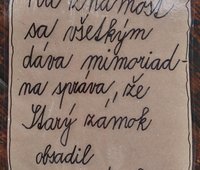 známosť
sa všetkým
dáva mimoriad-
na správa, že
Starý zámok
obsadil